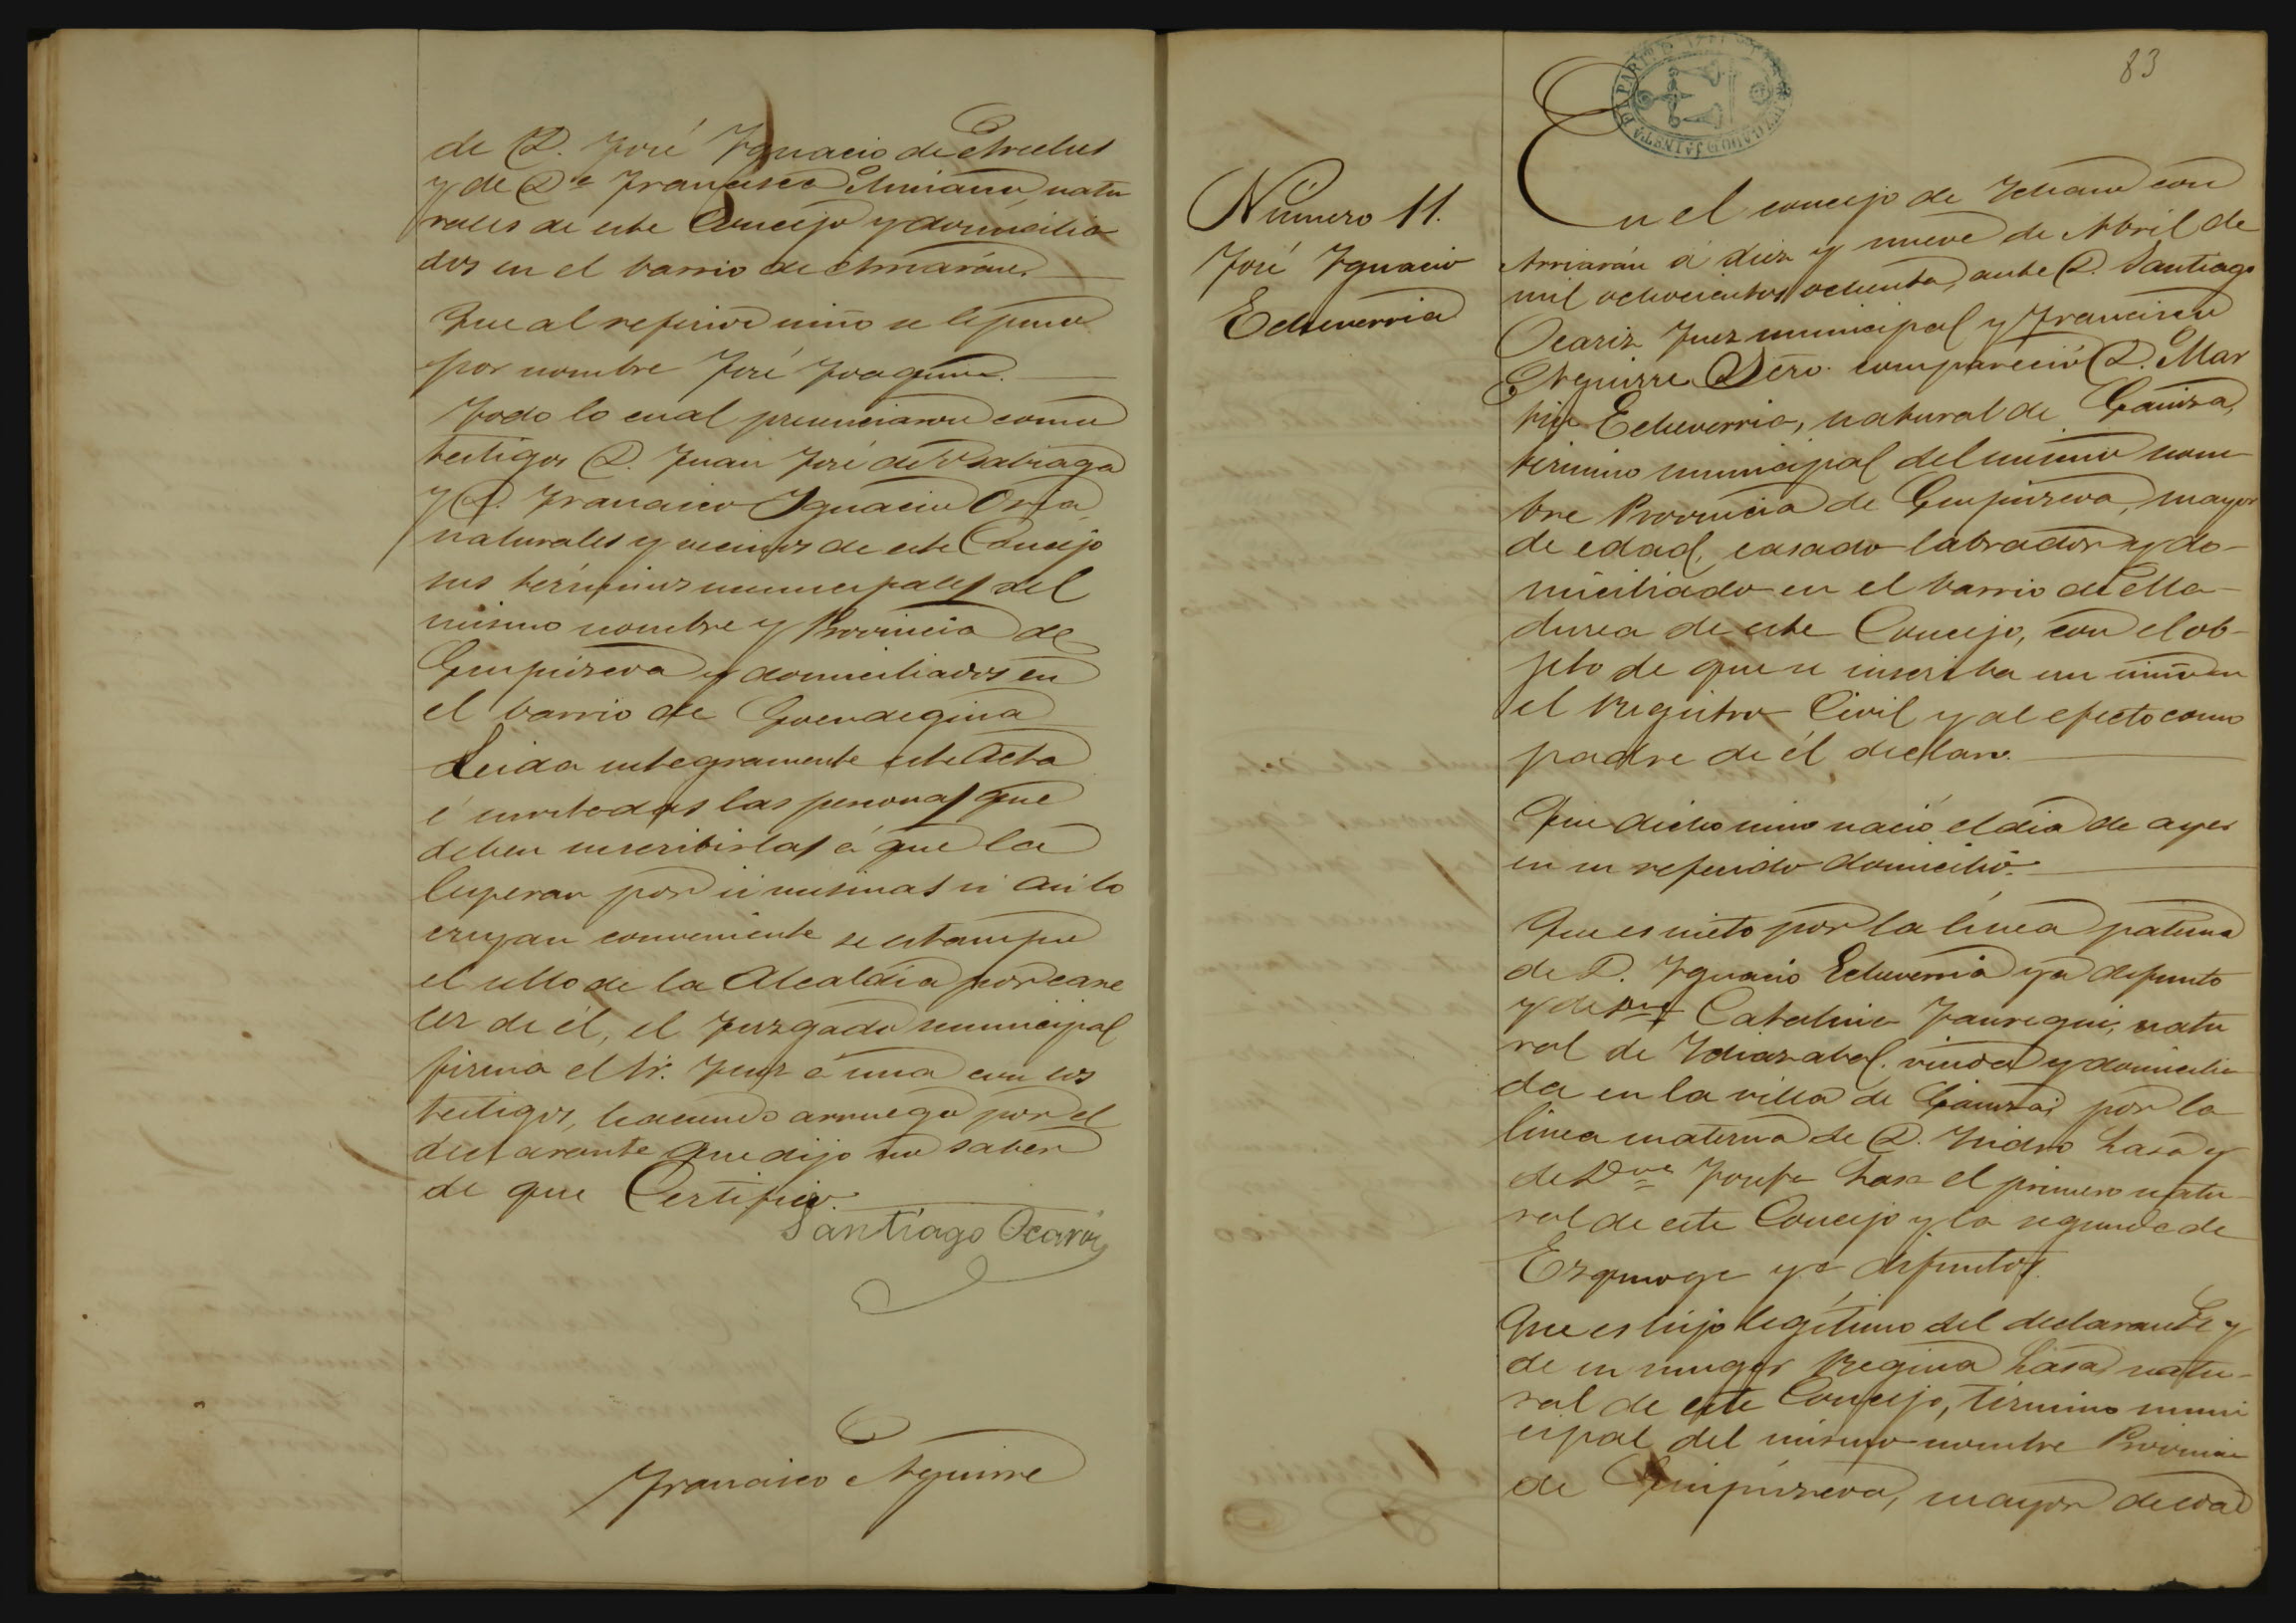 de D. José Ygnacio de
y de Dª Francisca natu
rales de este Concejo y domicilia
dos en el barrio de Arriarán.
Que al referido niño se le puso
por nombre José Joaquin.
Todo lo cual presenciaron como
testigos D. Juan José de Usabiaga
y D. Francisco Ygnacio Oria
naturales y vecinos de este Concejo
sus términos municipales del
mismo nombre y Provincia de
Guipúzcoa y domiciliados en
el barrio de
Leida integramente este Acta
é invitadas las personas que
deben suscribirlas á que la
leyeran por si mismas si asi lo
creyan conveniente se estampó
el sello de la Alcaldia por care
cer de él, el Juzgado municipal
firma el Sr. Juez á una con los
testigos, haciendo arruego por el
declarante que dijo no saber
de que Certifico.
Santiago Ocariz
Francisco Aguirre
83
Número 11.
José Ygnacio
Echeverria
En el concejo de Ichaso con
Arriarán á diez y nueve de Abril de
mil ochocientos ochenta, ante D. Santiago
Ocariz Juez municipal y Francisco
Aguirre Srio. compareció D. Mar
tin Echeverria, natural de Gainza,
término municipal del mismo nom
bre Provincia de Guipúzcoa, mayor
de edad, casado labrador y do-
miciliado en el barrio de
de este Concejo, con el ob-
jeto de que se inscriba un niño en
el Registro Civil y al efecto como
padre de él declaro.
Que dicho niño nació el dia de ayer
en su referido domicilio.
Que es nieto por la línea paterna
de D. Ygnacio Echeverria ya difunto
y de Dna Catalina Jauregui, natu
ral de Ydiazabal. viuda y domicilia
da en la villa de Gainza, por la
línea materna de D. Ysidro Lasa y
de Dna Josefa Lasa el primero natu-
ral de este Concejo y la segunda de
Ezquioga ya difuntos.
Que es hijo legítimo del declarante y
de su muger Regina Lasa, natu-
ral de este Concejo, término muni
cipal del mismo nombre Provincia
de Guipúzcoa, mayor de edad